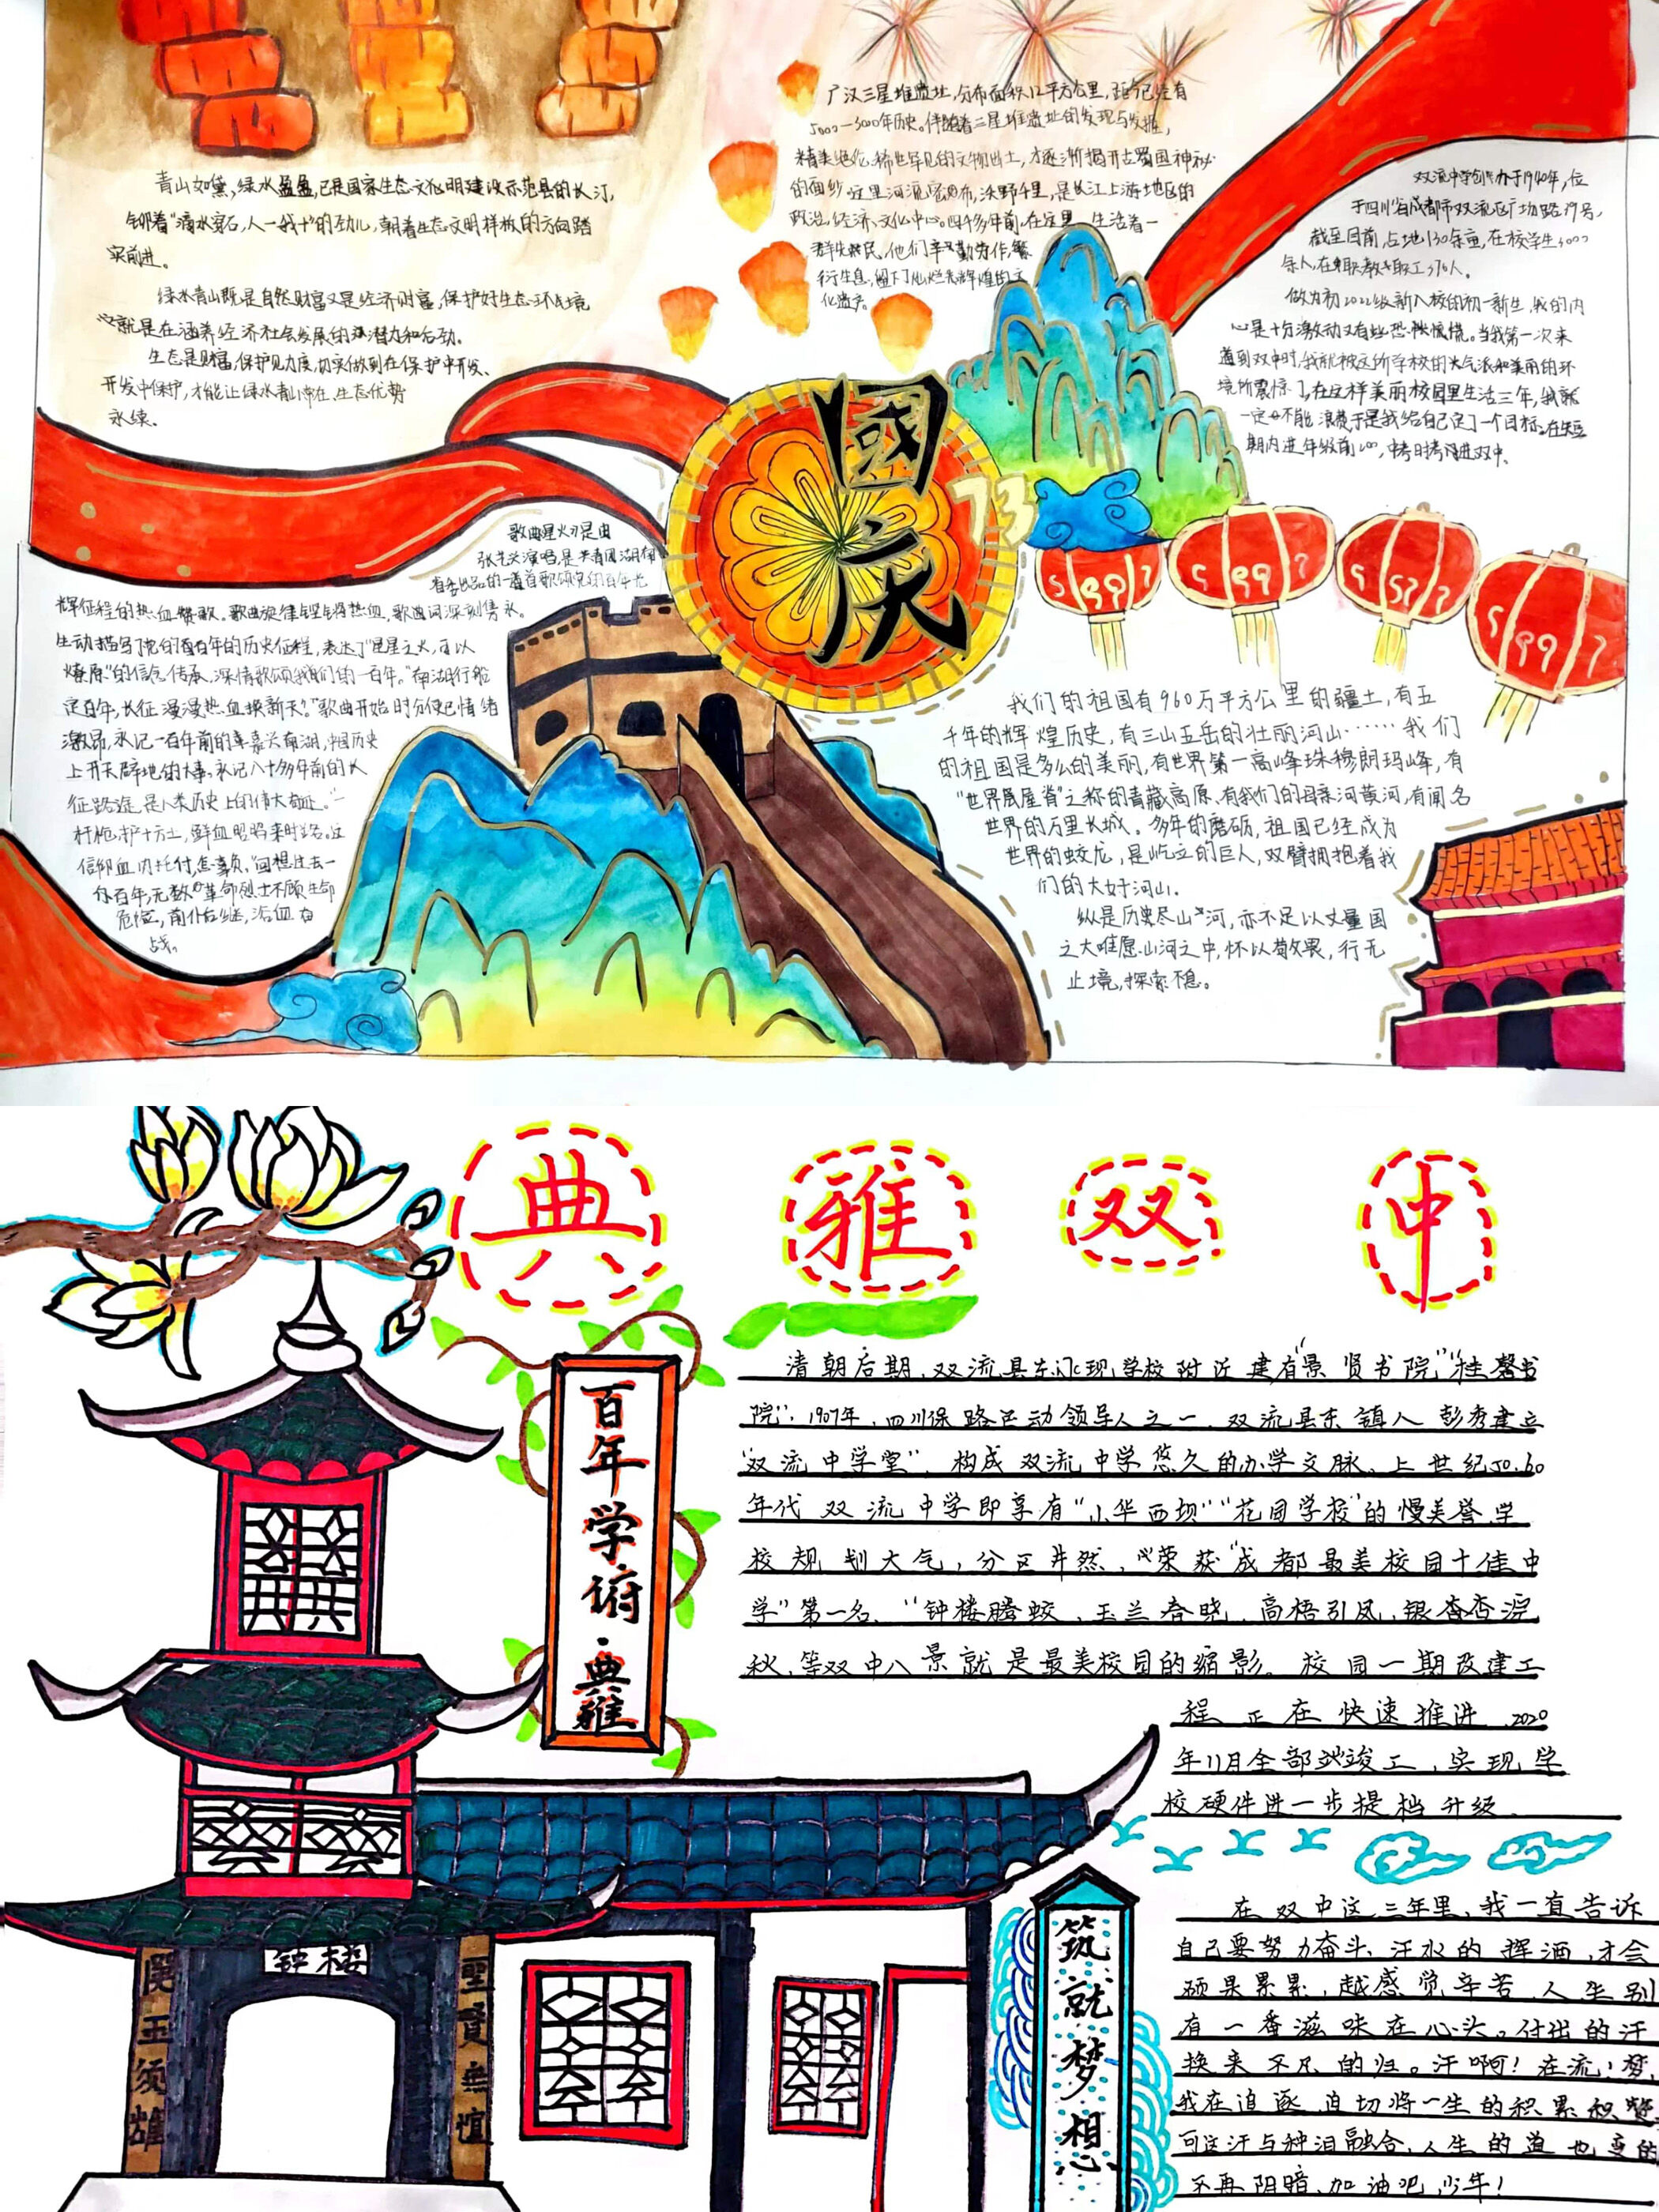 青山如黛,绿水盈盈,已是国家生态文化明建设示范县的长汀,
铆着"滴水穿石,人一我十"的劲儿,朝着生态文明样板的方向踏
实前进。
绿水青山既是自然财富又是经济财富,保护好生态环境
就是在涵养经济社会发展的潜力和后劲。
生态是财富,保护见力度,切实做到在保护中开发、
开发中保护,才能让绿水青山常在、生态优势
永续。
广汉三星堆遗址,分布面积12平方公里,距今已有
5000—3000年历史。伴随着三星堆遗址的发现与发掘,
精美绝伦、稀世罕见的文物出土,才逐渐揭开古蜀国神秘
的面纱.这里河流密布,沃野千里,是长江上游地区的
政治、经济、文化中心。四千多年前,在这里,生活着一
群先民,他们辛勤劳作,繁
衍生息,留下了灿烂辉煌的文
化遗产。
双流中学创办于1940年,位
于四川省成都市双流区广场路19号,
截至目前,占地130余亩,在校学生3000
余人,在职教职工370人。
做为初2022级新入校的初一新生,我的内
心是十分激动又有些恐慌。当我第一次来
道到双中时,我就被这所学校的大气派和美丽的环
境所震惊了,在这样美丽校园里生活三年,我就
一定不能浪费于是我给自己定了一个目标,在短
期内进年级前100,中考时考进双中。
國
庆
73
歌曲星火 是由
张艺兴演唱
辉征程的热血赞歌。歌曲旋律铿锵热血,歌曲词深刻隽永。
生动描写了党的百年的历史征程,表达了"星星之火,可以
燎原"的信念传承,深情歌颂我们的一百年。"南湖行船
定百年,长征漫漫热血换新天。"歌曲开始时分便已情绪
激昂,永记一百年前的嘉兴南湖,中国历史
上开天辟地的大事。永记八十多年前的长
征路途,是人类历史上的伟大奇迹。"一
杆枪护十方土,鲜血昭昭来时路。这
信仰血肉托付怎辜负。"回想过去一
百年,无数革命烈士不顾生命
危险,前仆后继,浴血奋
战。
我们的祖国有960万平方公里的疆土,有五
千年的辉煌历史,有三山五岳的壮丽河山……我们
的祖国是多么的美丽,有世界第一高峰珠穆朗玛峰,有
"世界屋脊"之称的青藏高原、有我们的母亲河黄河,有闻名
世界的万里长城。多年的磨砺,祖国已经成为
世界的蛟龙,是屹立的巨人,双臂拥抱着我
们的大好河山。
纵是历史尽山河,亦不足以丈量国
之大唯愿山河之中,怀以敬畏,行无
止境,探索不息。
典 雅 双 中
百年学府·典雅
清朝后期,双流县东门现学校附近建有"景贤书院""桂馨书
院",1907年,四川保路运动领导人之一,双流县东镇人彭 建立
"双流中学堂",构成双流中学悠久的办学文脉、上世纪50.60
年代双流中学即享有"小华西坝""花园学校"的慢美誉,学
校规划大气,分区井然,荣获"成都最美校园十佳中
学"第一名、"钟楼腾蛟、玉兰春晓,高梧引凤,银杏 
秋,等双中八景就是最美校园的缩影。校园一期改建工
程正在快速推进,2020
年11月全部竣工,实现学
校硬件进一步提档升级.
在双中这三年里,我一直告诉
自己要努力奋斗,汗水的挥洒,才会
硕果累累,越感觉辛苦,人生别
有一番滋味在心头。付出的汗
换来不凡的归。汗啊!在流,梦,
我在追逐,迫切将一生的积累积攒
可这汗与种泪融合,人生的道也变的
不再阴暗,加油吧,少年!
钟楼
筑就梦想